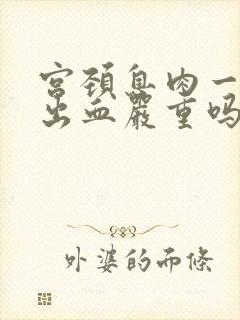 宫颈息肉一
出血严重吗
外婆的面條